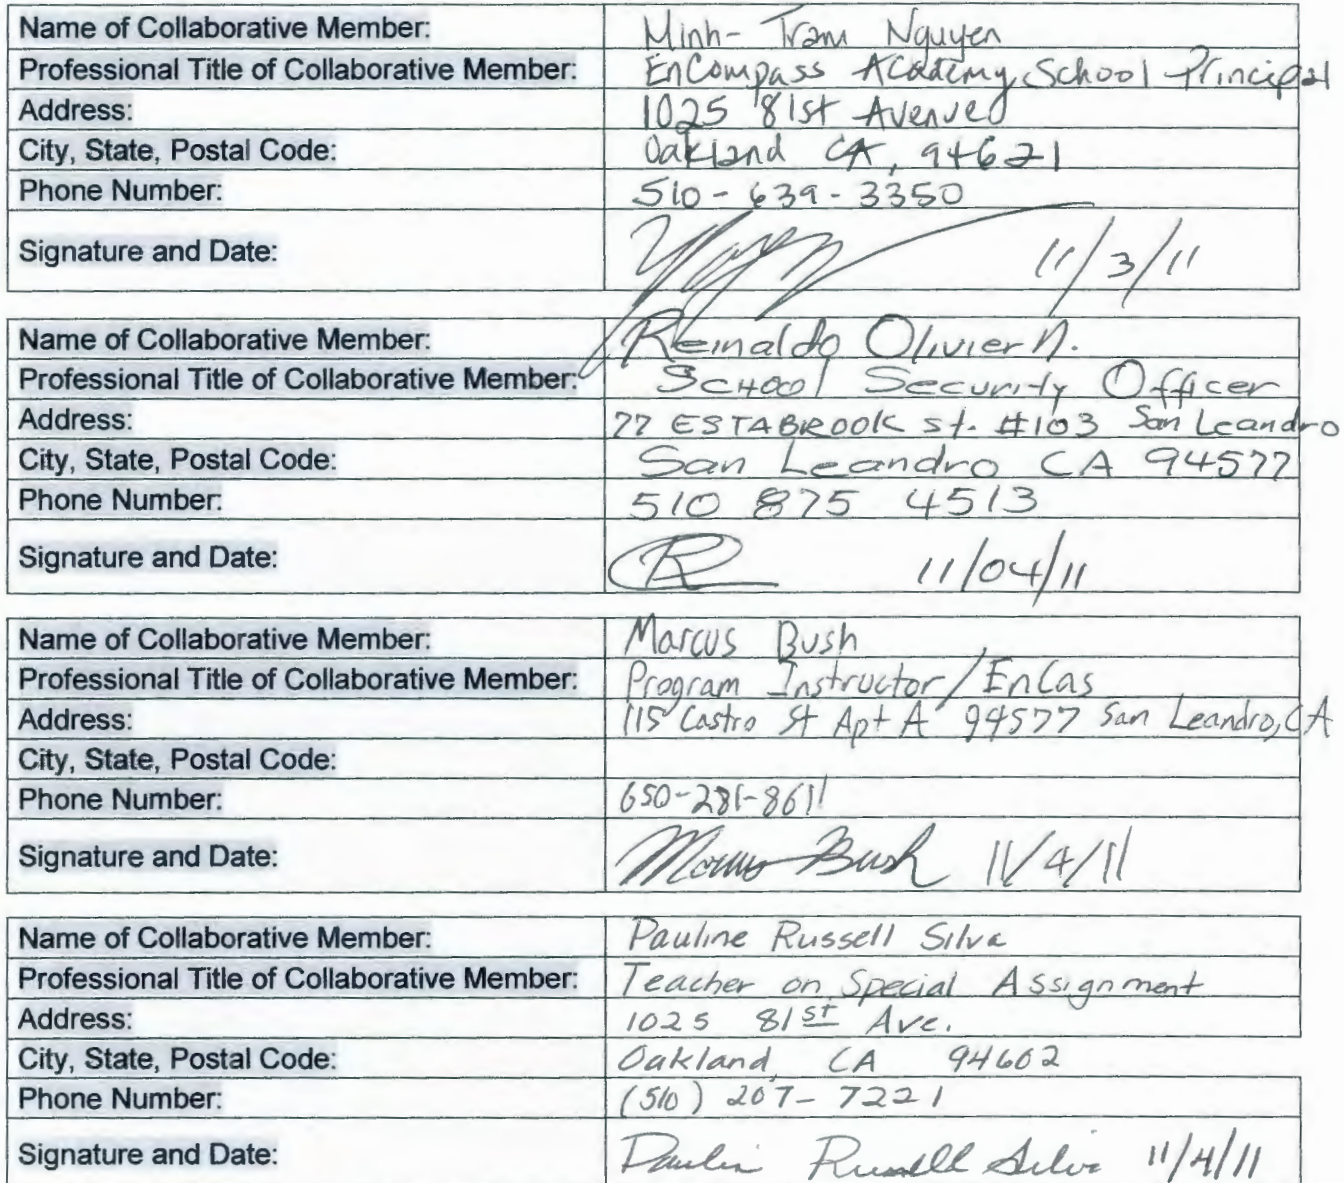 Name of Collaborative Member: Minh-Tram Nguyen
Professional Title of Collaborative Member: EnCompass Academy School Principal
Address: 1025 81st Avenue
City, State, Postal Code: Oakland CA, 94621
Phone Number: 510-639-3350
Signature and Date: 11/3/11
Name of Collaborative Member: Reinaldo Olivier N.
Professional Title of Collaborative Member: School Security Officer
Address: 77 ESTABROOK st. #103 San Leandro
City, State, Postal Code: San Leandro CA 94577
Phone Number: 510 875 4513
Signature and Date: R 11/04/11
Name of Collaborative Member: Marcus Bush
Professional Title of Collaborative Member: Program Instructor/EnCas
Address: 115 Castro St Apt A 94577 San Leandro, CA
City, State, Postal Code:
Phone Number: 650-281-8611
Signature and Date: Marcus Bush 11/4/11
Name of Collaborative Member: Pauline Russell Silva
Professional Title of Collaborative Member: Teacher on Special Assignment
Address: 1025 81st Ave.
City, State, Postal Code: Oakland, CA 94602
Phone Number: (510) 207-7221
Signature and Date: Pauline Russell Silva 11/4/11